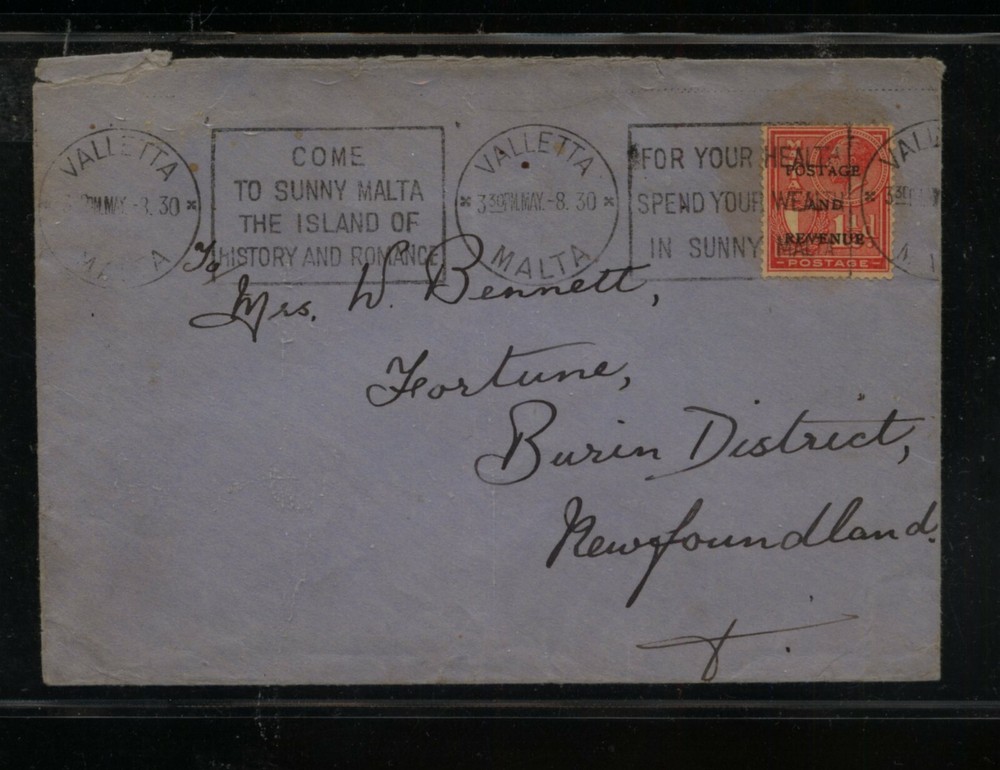 VALLETTA
3 30PM.MAY.-8. 30
COME
TO SUNNY MALTA
THE ISLAND OF
HISTORY AND ROMANCE
VALLETTA
3 30PM.MAY.-8. 30
MALTA
FOR YOUR HEALTH
SPEND YOUR
IN SUNNY MALTA
POSTAGE
AND
REVENUE
POSTAGE
To
Mrs. W. Bennett,
Fortune,
Burin District,
Newfoundland.